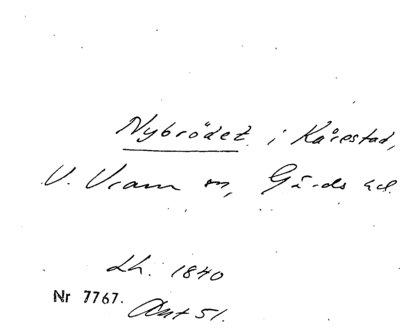 Nybrödet i Kårestad,
V. Vram sn, Gärds hd.
Lh. 1840
Nr 7767. Ant 51.